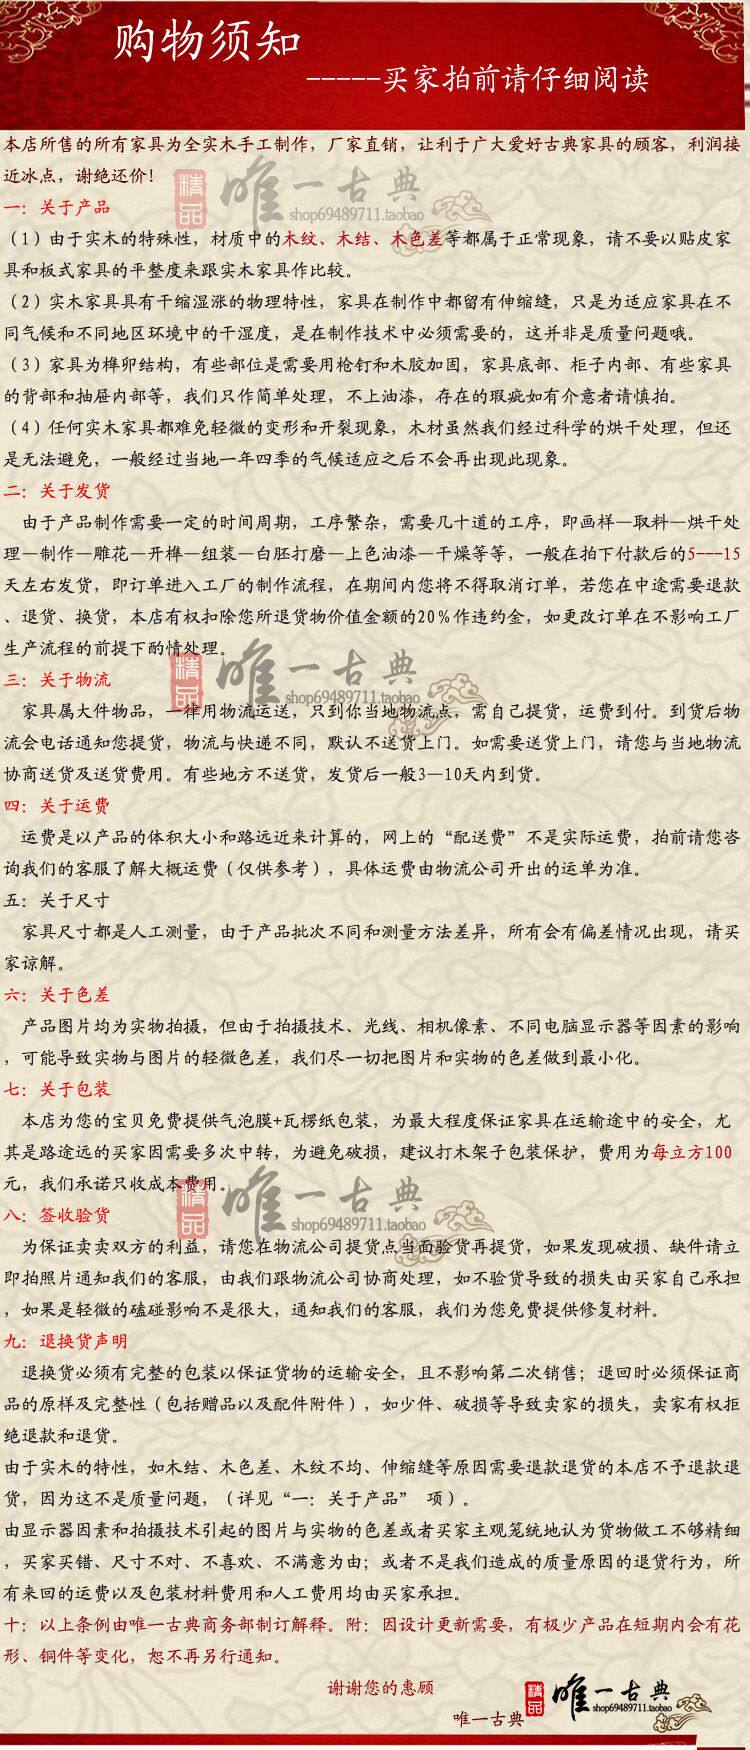 购物须知
-----买家拍前请仔细阅读
本店所售的所有家具为全实木手工制作，厂家直销，让利于广大爱好古典家具的顾客，利润接
近冰点，谢绝还价！
精品 唯一古典
shop69489711.taobao
一：关于产品
（1）由于实木的特殊性，材质中的木纹、木结、木色差等都属于正常现象，请不要以贴皮家
具和板式家具的平整度来跟实木家具作比较。
（2）实木家具具有干缩湿涨的物理特性，家具在制作中都留有伸缩缝，只是为适应家具在不
同气候和不同地区环境中的干湿度，是在制作技术中必须需要的，这并非是质量问题哦。
（3）家具为榫卯结构，有些部位是需要用枪钉和木胶加固，家具底部、柜子内部、有些家具
的背部和抽屉内部等，我们只作简单处理，不上油漆，存在的瑕疵如有介意者请慎拍。
（4）任何实木家具都难免轻微的变形和开裂现象，木材虽然我们经过科学的烘干处理，但还
是无法避免，一般经过当地一年四季的气候适应之后不会再出现此现象。
二：关于发货
由于产品制作需要一定的时间周期，工序繁杂，需要几十道的工序，即画样—取料—烘干处
理—制作—雕花—开榫—组装—白胚打磨—上色油漆—干燥等等，一般在拍下付款后的5---15
天左右发货，即订单进入工厂的制作流程，在期间内您将不得取消订单，若您在中途需要退款
、退货、换货，本店有权扣除您所退货物价值金额的20%作违约金，如更改订单在不影响工厂
生产流程的前提下酌情处理。
精品 唯一古典
shop69489711.taobao
三：关于物流
家具属大件物品，一律用物流运送，只到你当地物流点，需自己提货，运费到付。到货后物
流会电话通知您提货，物流与快递不同，默认不送货上门。如需要送货上门，请您与当地物流
协商送货及送货费用。有些地方不送货，发货后一般3—10天内到货。
四：关于运费
运费是以产品的体积大小和路远近来计算的，网上的“配送费”不是实际运费，拍前请您咨
询我们的客服了解大概运费（仅供参考），具体运费由物流公司开出的运单为准。
五：关于尺寸
家具尺寸都是人工测量，由于产品批次不同和测量方法差异，所有会有偏差情况出现，请买
家谅解。
六：关于色差
产品图片均为实物拍摄，但由于拍摄技术、光线、相机像素、不同电脑显示器等因素的影响
，可能导致实物与图片的轻微色差，我们尽一切把图片和实物的色差做到最小化。
七：关于包装
本店为您的宝贝免费提供气泡膜+瓦楞纸包装，为最大程度保证家具在运输途中的安全，尤
其是路途远的买家因需要多次中转，为避免破损，建议打木架子包装保护，费用为每立方100
元，我们承诺只收成本费用。
精品 唯一古典
shop69489711.taobao
八：签收验货
为保证卖卖双方的利益，请您在物流公司提货点当面验货再提货，如果发现破损、缺件请立
即拍照片通知我们的客服，由我们跟物流公司协商处理，如不验货导致的损失由买家自己承担
，如果是轻微的磕碰影响不是很大，通知我们的客服，我们为您免费提供修复材料。
九：退换货声明
退换货必须有完整的包装以保证货物的运输安全，且不影响第二次销售；退回时必须保证商
品的原样及完整性（包括赠品以及配件附件），如少件、破损等导致卖家的损失，卖家有权拒
绝退款和退货。
由于实木的特性，如木结、木色差、木纹不均、伸缩缝等原因需要退款退货的本店不予退款退
货，因为这不是质量问题，（详见“一：关于产品” 项）。
由显示器因素和拍摄技术引起的图片与实物的色差或者买家主观笼统地认为货物做工不够精细
，买家买错、尺寸不对、不喜欢、不满意为由；或者不是我们造成的质量原因的退货行为，所
有来回的运费以及包装材料费用和人工费用均由买家承担。
十：以上条例由唯一古典商务部制订解释。附：因设计更新需要，有极少产品在短期内会有花
形、铜件等变化，恕不再另行通知。
谢谢您的惠顾
唯一古典
精品 唯一古典
shop69489711.taobao